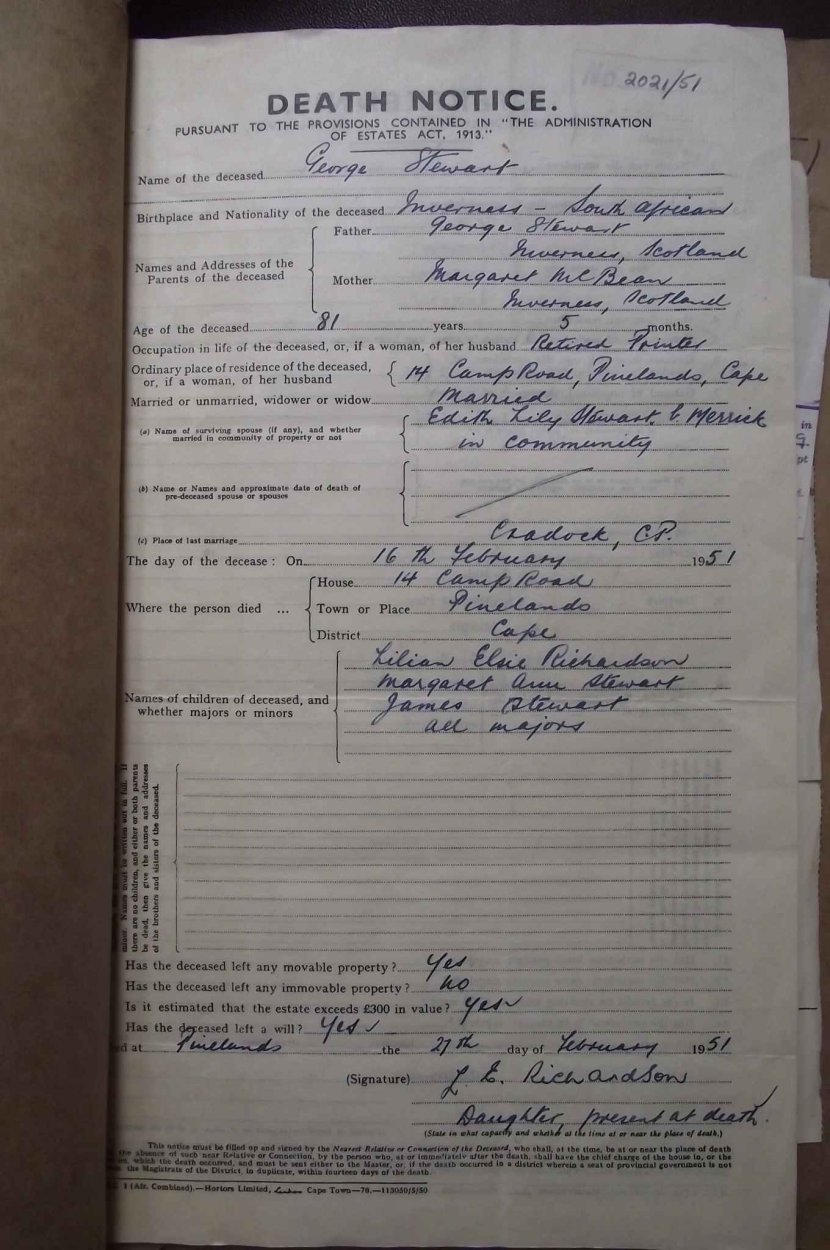 No 2021/51
DEATH NOTICE.
PURSUANT TO THE PROVISIONS CONTAINED IN "THE ADMINISTRATION
OF ESTATES ACT, 1913."
Name of the deceased George Stewart
Birthplace and Nationality of the deceased Inverness - South African
Names and Addresses of the
Parents of the deceased
Father George Stewart
Inverness, Scotland
Mother Margaret McBean
Inverness, Scotland
Age of the deceased 81 years 5 months.
Occupation in life of the deceased, or, if a woman, of her husband Retired Printer
Ordinary place of residence of the deceased,
or, if a woman, of her husband
14 Camp Road, Pinelands, Cape
Married or unmarried, widower or widow Married
(a) Name of surviving spouse (if any), and whether
married in community of property or not
Edith Lily Stewart b. Merrick
in community
(b) Name or Names and approximate date of death of
pre-deceased spouse or spouses
(c) Place of last marriage Cradock, C.P.
The day of the decease: On 16th February 1951
Where the person died ...
House 14 Camp Road
Town or Place Pinelands
District Cape
Names of children of deceased, and
whether majors or minors
Lilian Elsie Richardson
Margaret Ann Stewart
James Stewart
all majors
minor. Names must be written out in full. If
there are no children, and either or both parents
be dead, then give the names and addresses
of the brothers and sisters of the deceased.
Has the deceased left any movable property? Yes
Has the deceased left any immovable property? no
Is it estimated that the estate exceeds £300 in value? Yes
Has the deceased left a will? Yes
ed at Pinelands the 27th day of February 1951
(Signature) L. E. Richardson
Daughter, present at death.
(State in what capacity and whether at the time at or near the place of death.)
This notice must be filled up and signed by the Nearest Relative or Connection of the Deceased, who shall, at the time, be at or near the place of death
the absence of such near Relative or Connection, by the person who, at or immediately after the death, shall have the chief charge of the house in, or the
which the death occurred, and must be sent either to the Master, or, if the death occurred in a district wherein a seat of provincial government is not
the Magistrate of the District, in duplicate, within fourteen days of the death.
1 (Afr. Combined).—Hortors Limited, Cape Town—78.—113050/5/50
in
pt